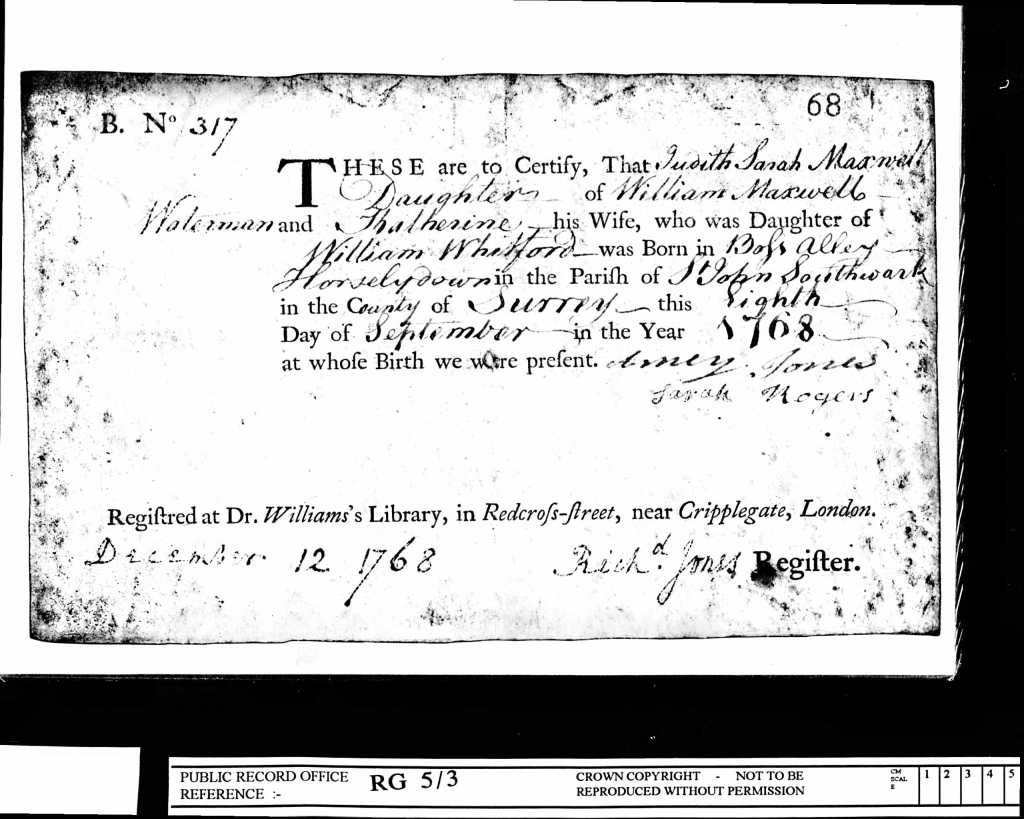 68
B. Nº 317
THESE are to Certify, That Judith Sarah Maxwell
Daughter of William Maxwell
Waterman and Khatherine his Wife, who was Daughter of
William Whitford was Born in Boſs Alley
Horselydown in the Pariſh of St John Southwark
in the County of Surrey this Eighth
Day of September in the Year 1768
at whoſe Birth we were preſent. Amey Jones
Sarah Rogers
Regiſtred at Dr. Williams's Library, in Redcroſs-ſtreet, near Cripplegate, London.
December 12 1768 Richd. Jones Regiſter.
PUBLIC RECORD OFFICE RG 5/3 CROWN COPYRIGHT - NOT TO BE
REFERENCE :- REPRODUCED WITHOUT PERMISSION
CM SCALE 1 2 3 4 5